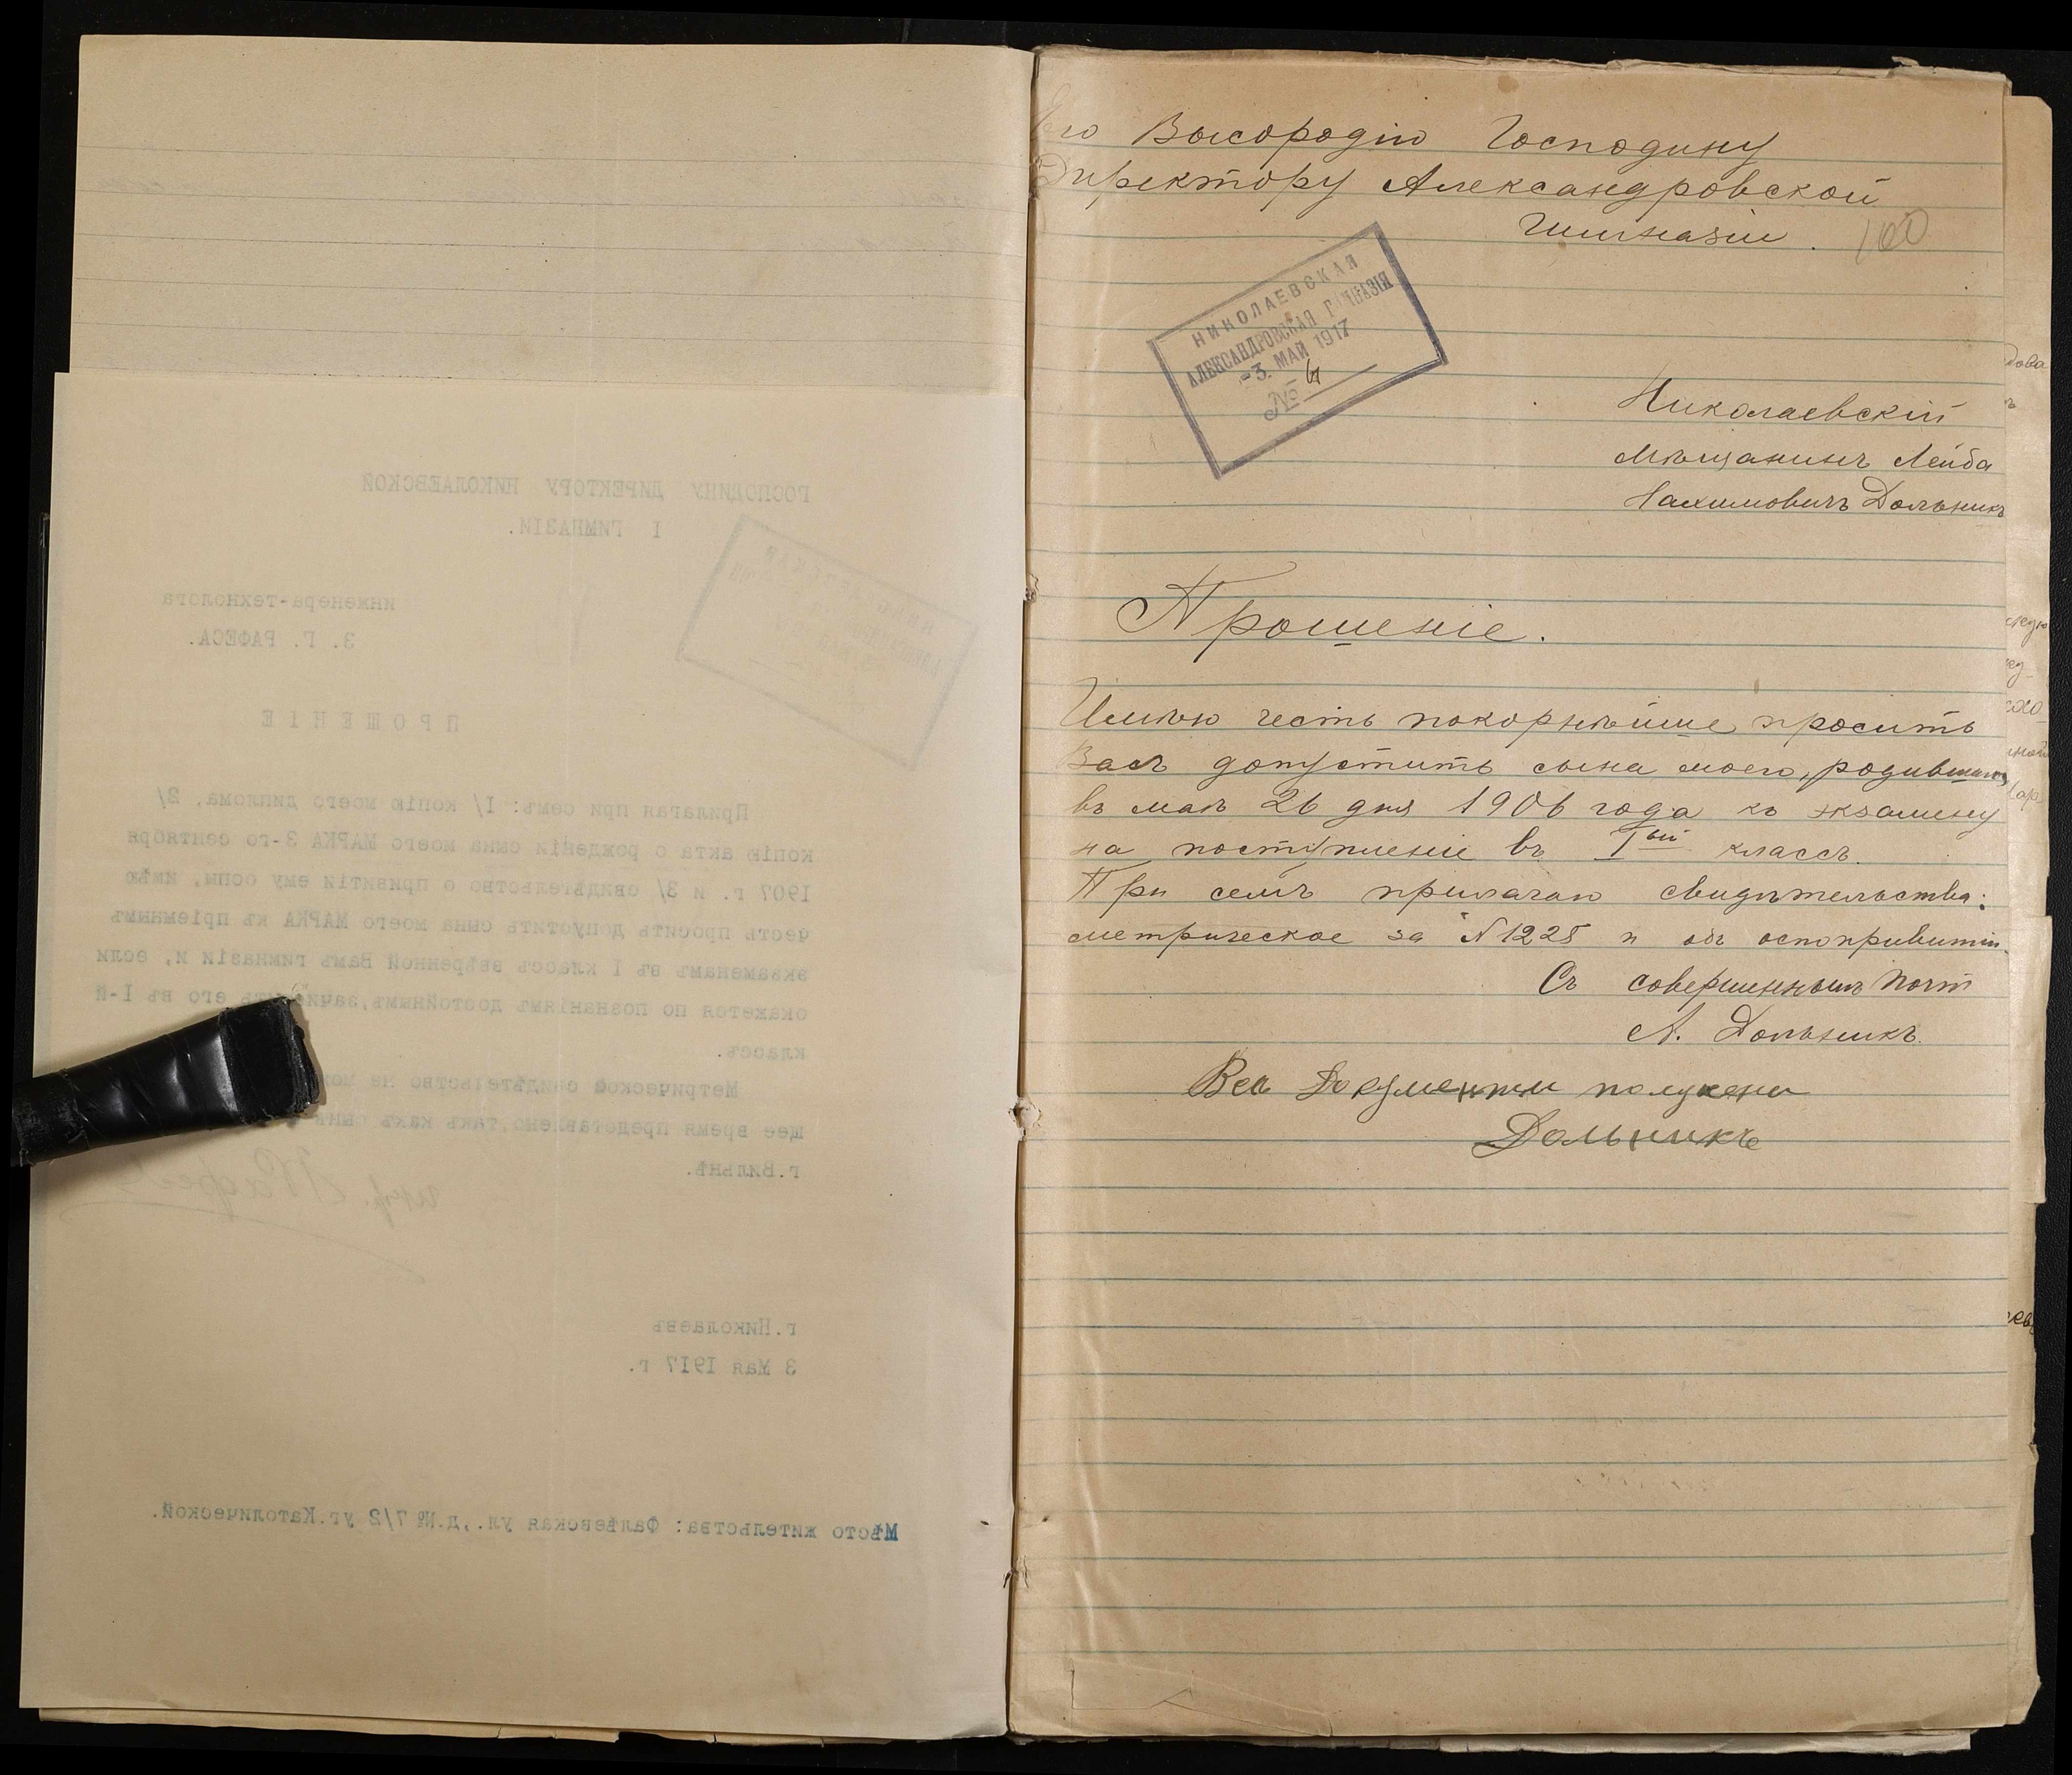 ГОСПОДИНУ ДИРЕКТОРУ НИКОЛАЕВСКОЙ
I ГИМНАЗІИ.
инженера-технолога
З. Г. РАФЕСА.
ПРОШЕНІЕ
Прилагая при семъ: I/ копію моего диплома, 2/
копію акта о рожденіи сына моего МАРКА 3-го сентября
1907 г. и 3/ свидѣтельство о привитіи ему оспы, имѣю
честь просить допустить сына моего МАРКА къ пріемнымъ
экзаменамъ въ I классъ ввѣренной Вамъ гимназіи и, если
окажется по познаніямъ достойнымъ, его въ I-й
классъ.
Метрическое свидѣтельство не
щее время представлено, такъ какъ
г.Вильнѣ.
г.Николаевъ
3 Мая 1917 г.
Мѣсто жительства: Фалѣевская ул., д.№ 7/2 уг.Католической.
Его Высородію Господину
Директору Александровской
Гимназіи.
100
НИКОЛАЕВСКАЯ
АЛЕКСАНДРОВСКАЯ ГИМНАЗІЯ
-3. МАЙ 1917
№
Николаевскій
Мѣщанинъ Лейба
Нахимовичъ Дольникъ
Прошеніе.
Имѣю честь покорнѣйше просить
Васъ допустить сына моего, родившагося
въ маѣ 26 дня 1906 года къ экзамену
на поступленіе въ Iый классъ.
При семъ прилагаю свидѣтельства:
метрическое за №1228 и объ оспопривитіи.
Съ совершеннымъ почт
Л. Дольникъ.
Все Документы получены
Дольникъ